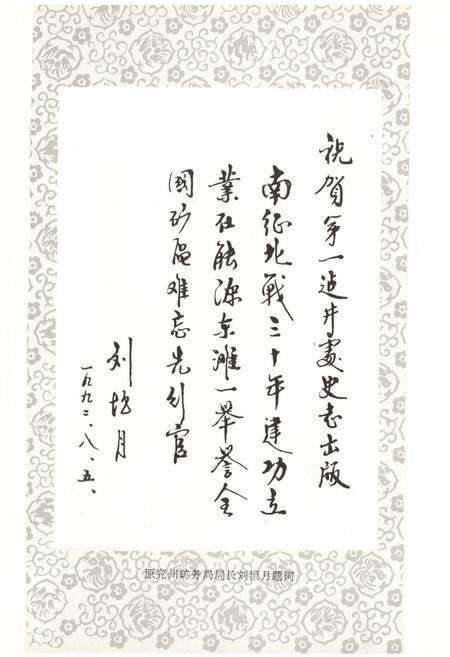 祝贺第一造井處史志出版
南征北戰三十年建功立
業在能源东滩一举誉全
國矿區难忘先行官
刘恒月
一九九二、八、五、
原兖州矿务局局长刘恒月题词